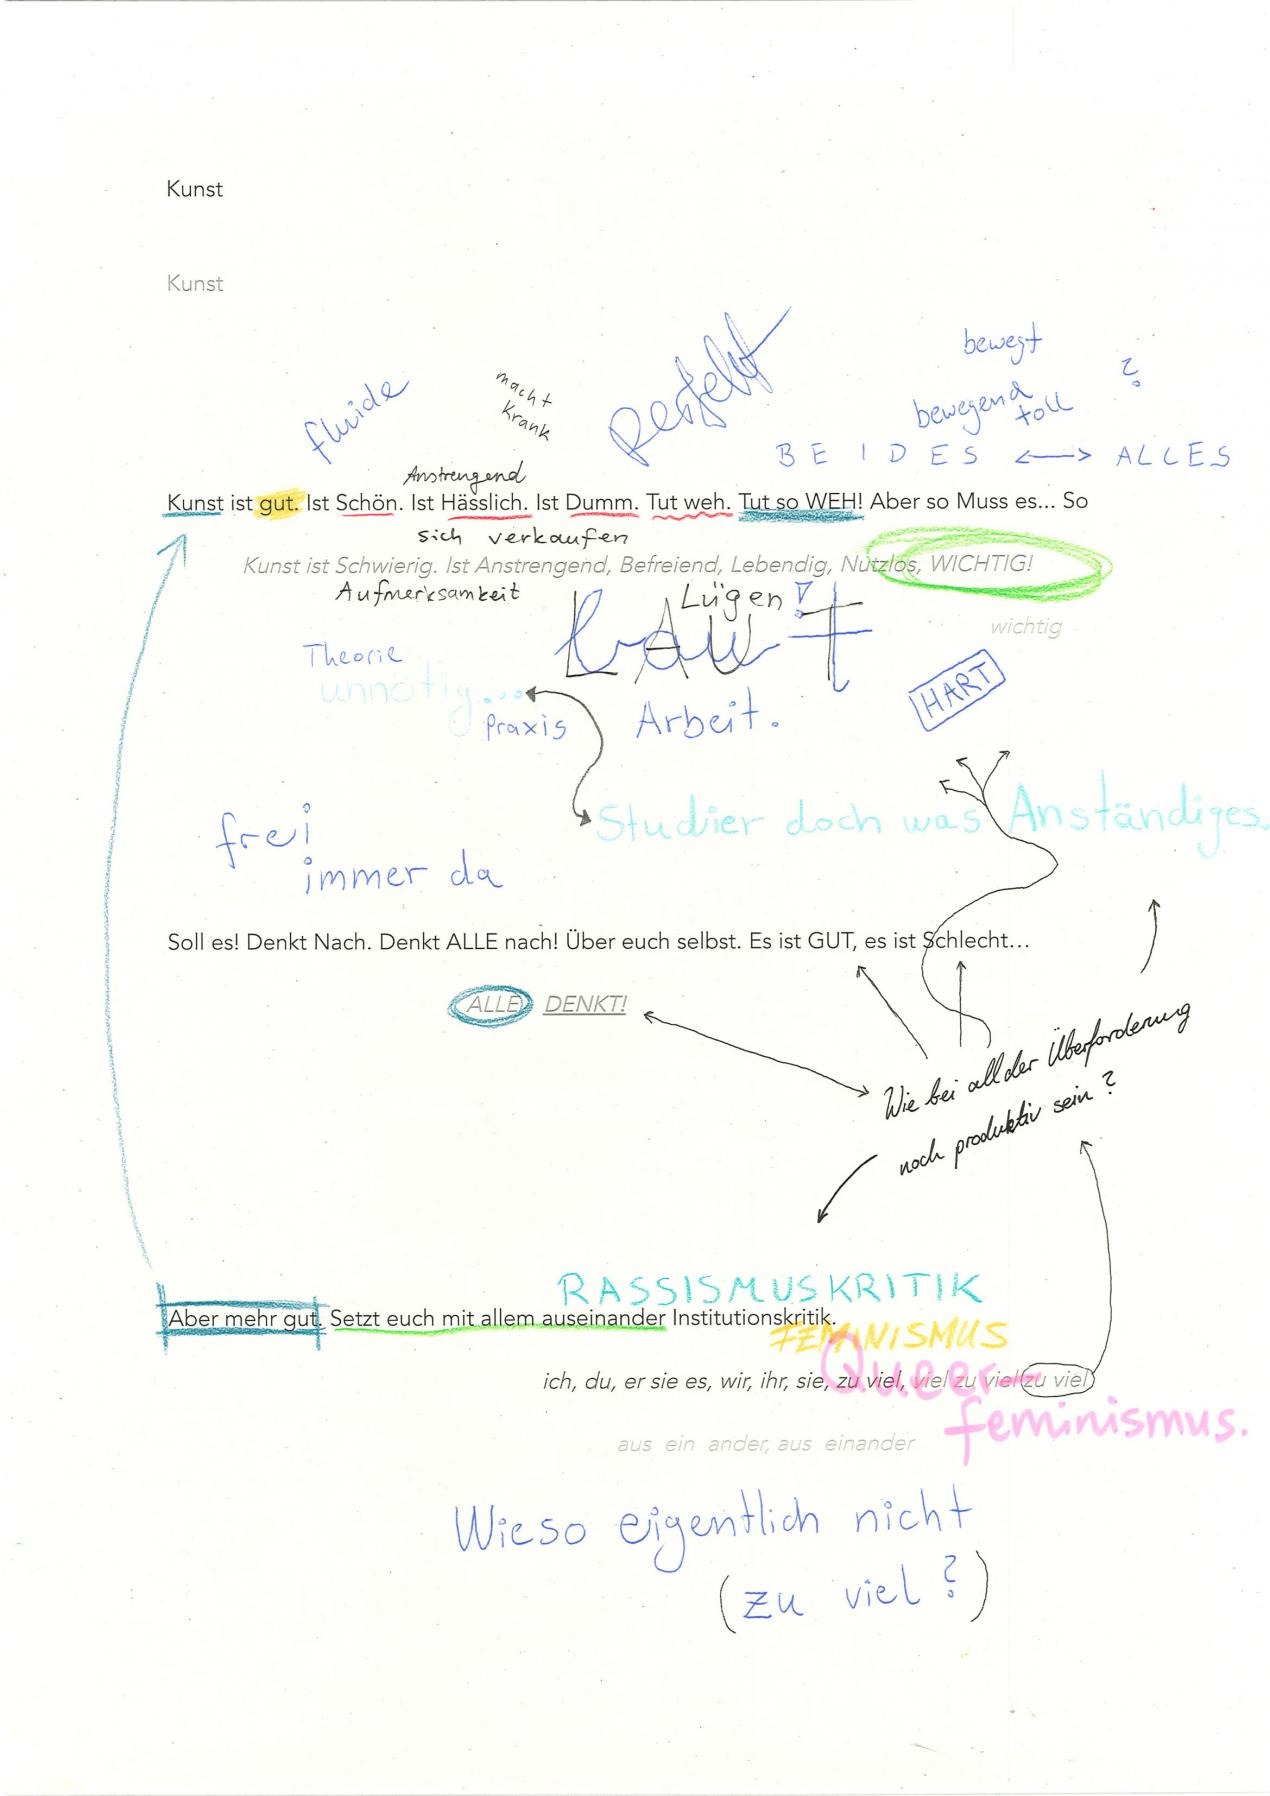 Kunst
Kunst
bewegt
?
fluide
macht
krank
perfekt
bewegend
toll
BEIDES <—> ALLES
Anstrengend
Kunst ist gut. Ist Schön. Ist Hässlich. Ist Dumm. Tut weh. Tut so WEH! Aber so Muss es... So
sich verkaufen
Kunst ist Schwierig. Ist Anstrengend, Befreiend, Lebendig, Nutzlos, WICHTIG!
Aufmerksamkeit
Lügen!
LAUT
laut
wichtig
Theorie
unnötig...
Praxis
Arbeit.
HART
Studier doch was Anständiges.
frei
immer da
Soll es! Denkt Nach. Denkt ALLE nach! Über euch selbst. Es ist GUT, es ist Schlecht...
ALLE DENKT!
Wie bei all der Überforderung
noch produktiv sein?
RASSISMUSKRITIK
Aber mehr gut. Setzt euch mit allem auseinander Institutionskritik.
FEMINISMUS
Queer-
ich, du, er sie es, wir, ihr, sie, zu viel, viel zu viel zu viel
feminismus.
aus ein ander, aus einander
Wieso eigentlich nicht
(zu viel?)